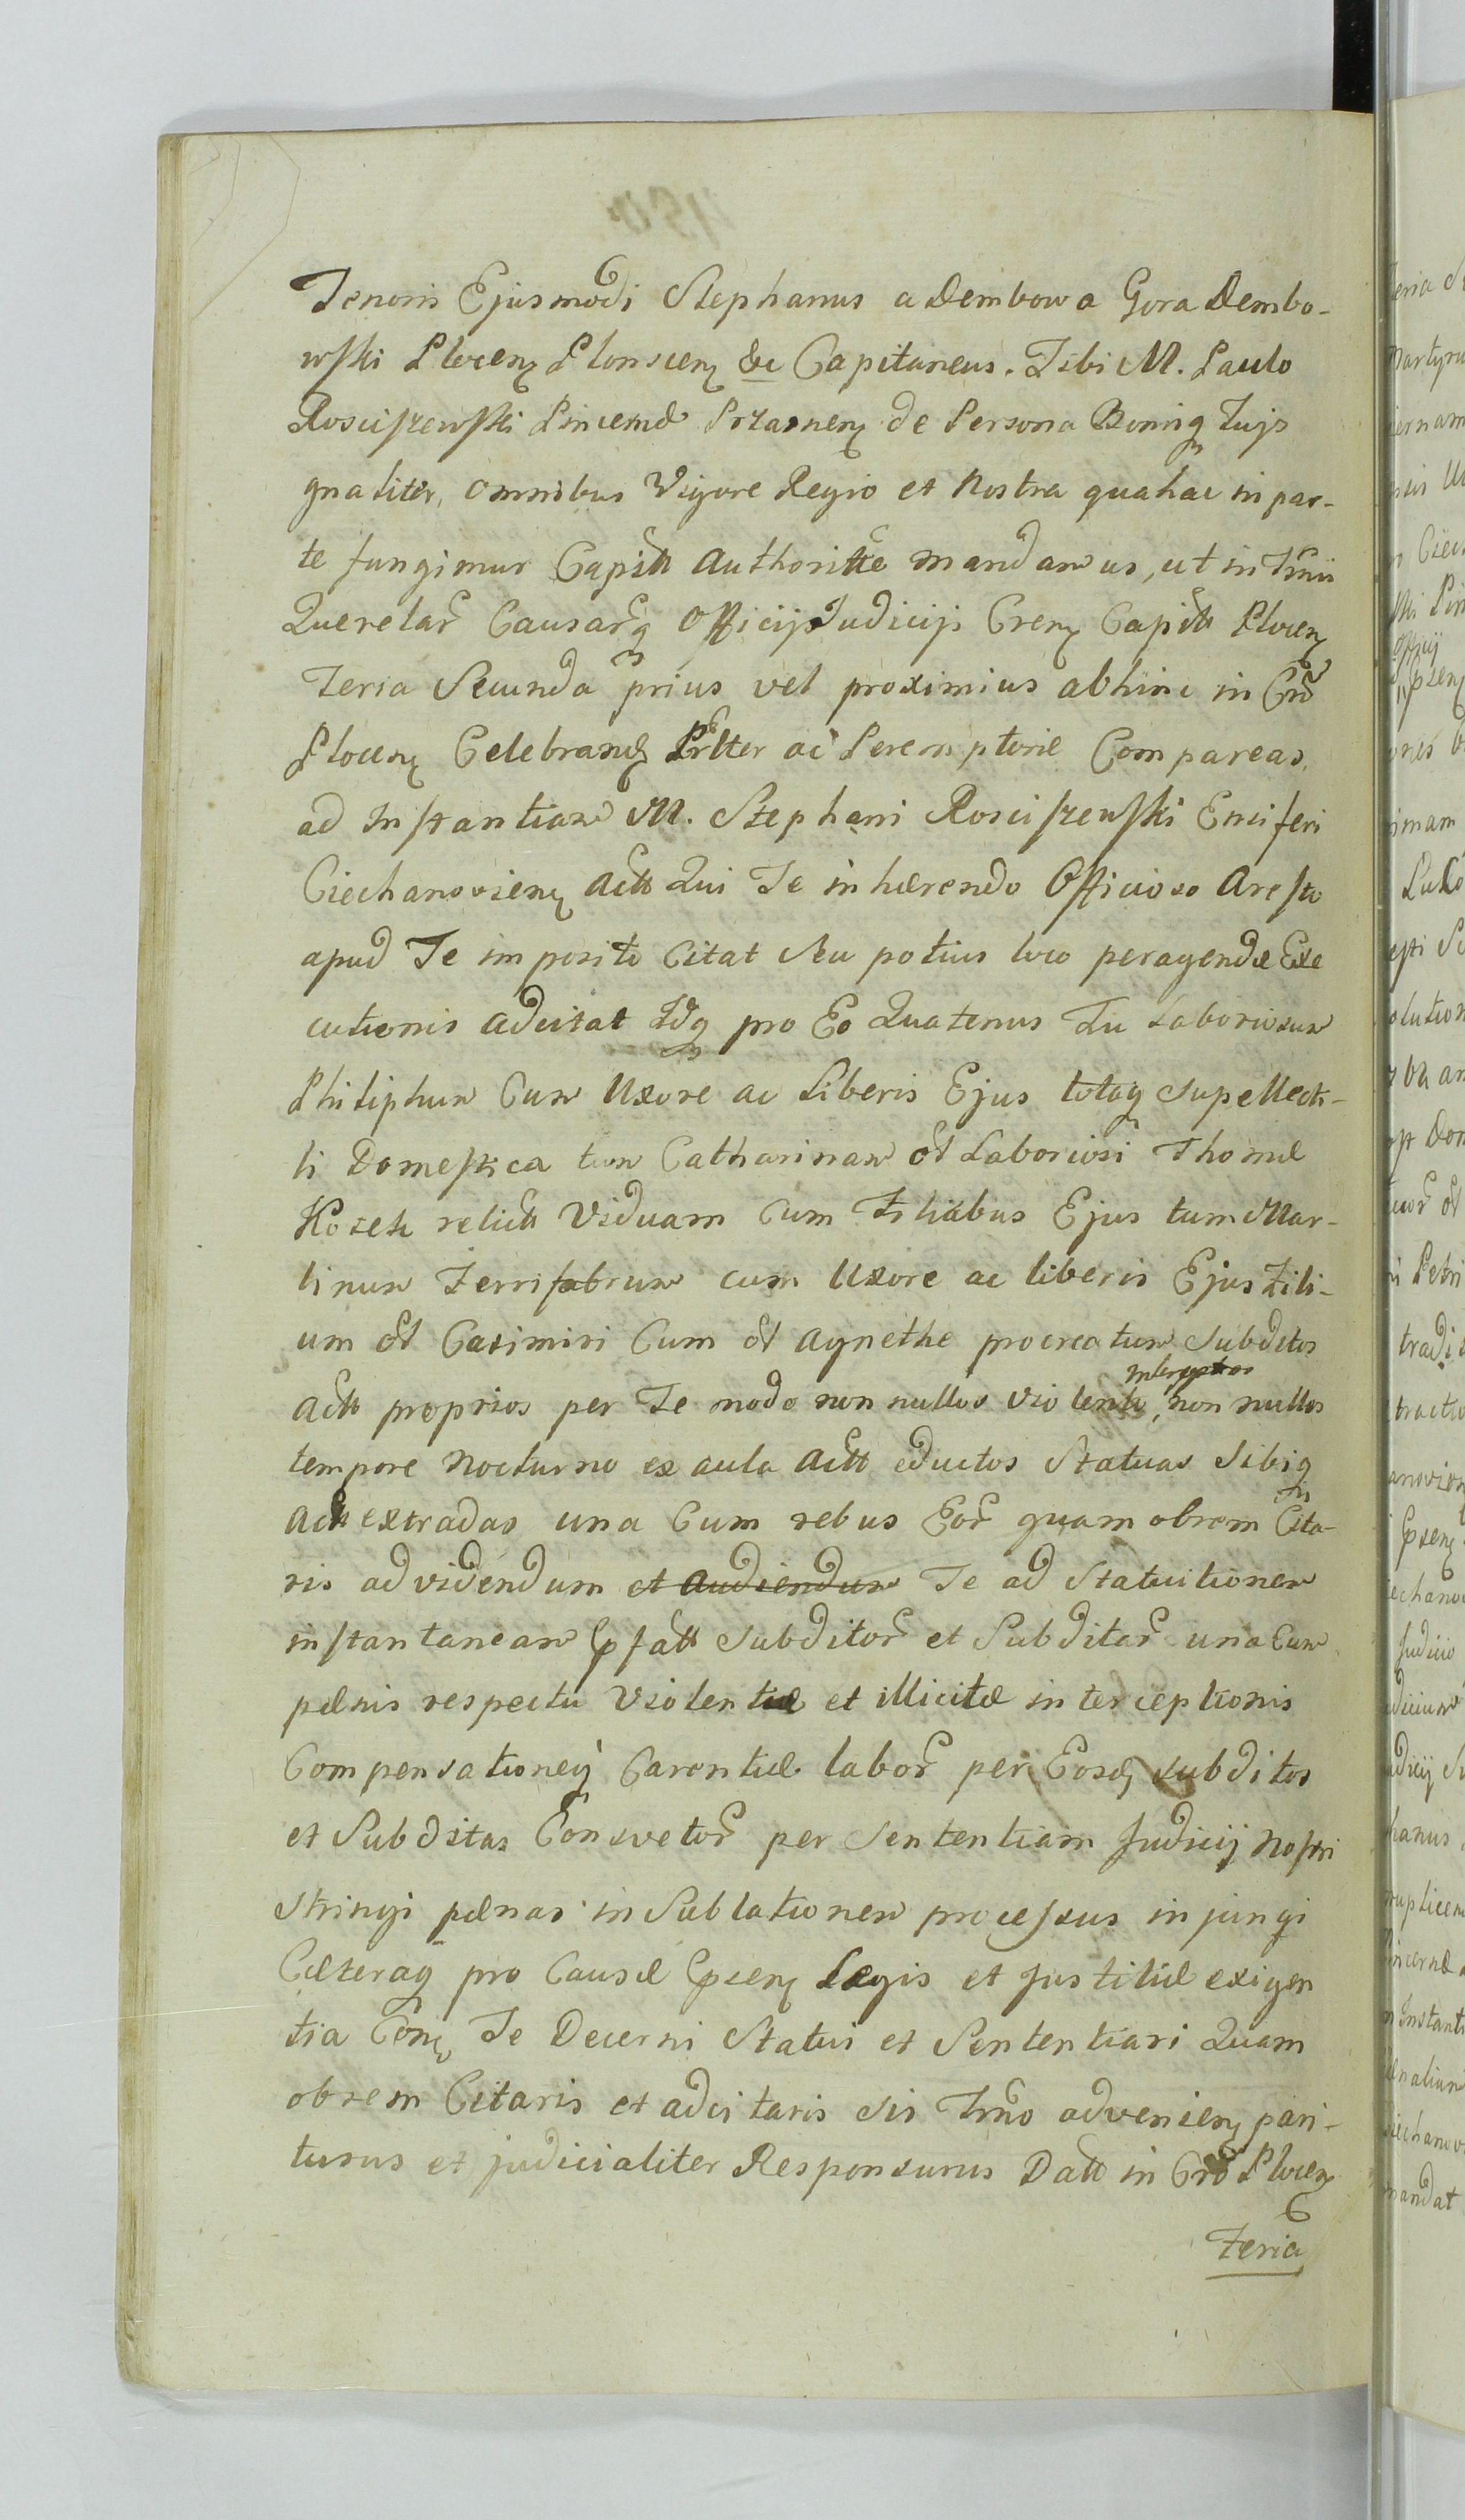 Tenoris Ejusmodi Stephanus a Dembowa Gora Dembo-
wski Plocen Plonscen &c Capitaneus. Tibi M. Paulo
Rosciszewski Pincernæ Przasnen de Persona Bonisq Tuis
gnaliter, omnibus Vigore Regio et Nostra qua hac in par-
te fungimur Capitt Authoritte mandamus, ut in Tmii
Querelar Causarq Officij Judicij Cren Capitt Plocen
Feria Secunda prius vel proximius abhinc in Cro
Plocen Celebrand Prltter ac Peremptorie Compareas,
ad Instantiam M. Stephani Rosciszewski Ensiferi
Ciechanovien Actt Qui Te inhærendo Officioso Aresto
apud Te imposito Citat Seu potius loco peragendæ Exe
cutionis adcitat Idq pro Eo Quatenus Tu Laboriosum
Philiphum Cum Uxore ac Liberis Ejus totaq Supellecti-
li Domestica tum Catharinam ol Laboriosi Thomæ
Kozek relictt Viduam Cum Filiabus Ejus tum Mar-
tinum Ferrifabrum cum Uxore ac liberis Ejus Fili-
um ol Casimiri Cum ol Agnethe procreatum Subditos
Actt proprios per Te modo non nullos violento, non nullos
interceptos
tempore Nocturno ex aula Actt eductos Statuas Sibiq
Actt extradas una Cum rebus Eor quamobrem Cita-
ris ad videndum et audiendum Te ad Statuitionem
instantaneam Psatt Subditor et Subditar una Cum
pænis respectu Violentæ et illicitæ interceptionis
Compensationeq Carentiæ labor per Eosd Subditos
et Subditas Consvetor per Sententiam Judicij Nostri
Stringi pænas in Sublationem processus injungi
Cæteraq pro Causæ Psen Legis et Justitiæ exigen
tia Con Te Decerni Statui et Sententiari Quam
obrem Citaris et adcitaris Sis Tmo advenien pari-
turus et judicialiter Responsurus Datt in Cro Plocen
Feria